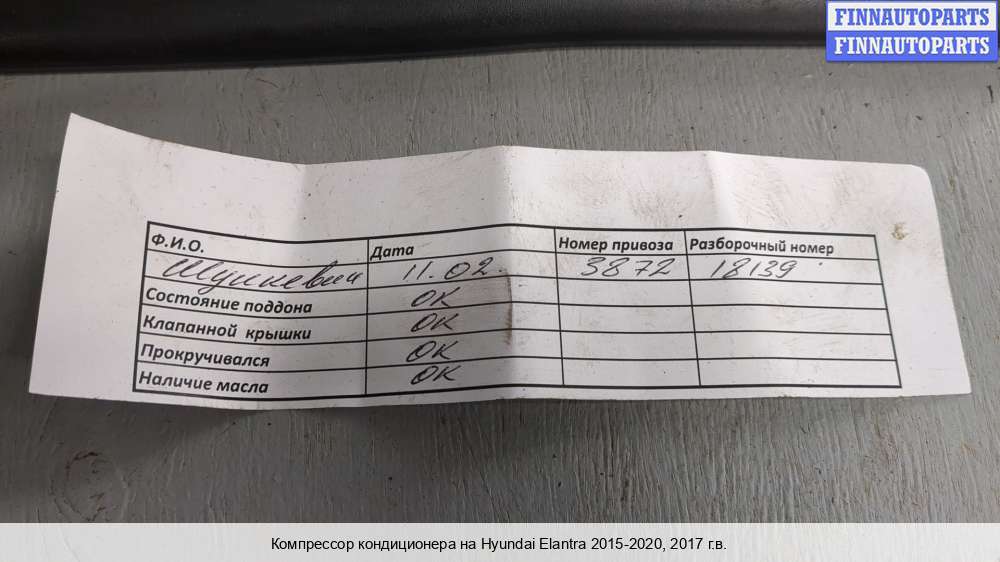 FINNAUTOPARTS
FINNAUTOPARTS
Ф.И.О. Дата Номер привоза Разборочный номер
Шункевич 11.02. 3872 18139
Состояние поддона ОК
Клапанной крышки ОК
Прокручивался ОК
Наличие масла ОК
Компрессор кондиционера на Hyundai Elantra 2015-2020, 2017 г.в.